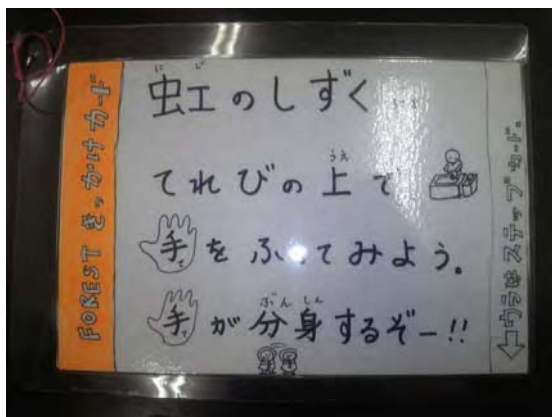 FOREST きっかけカード
虹のしずく
にじ
てれびの上で
うえ
手をふってみよう。
て
手が分身するぞー!!
て
ぶんしん
ウラはステップカード。